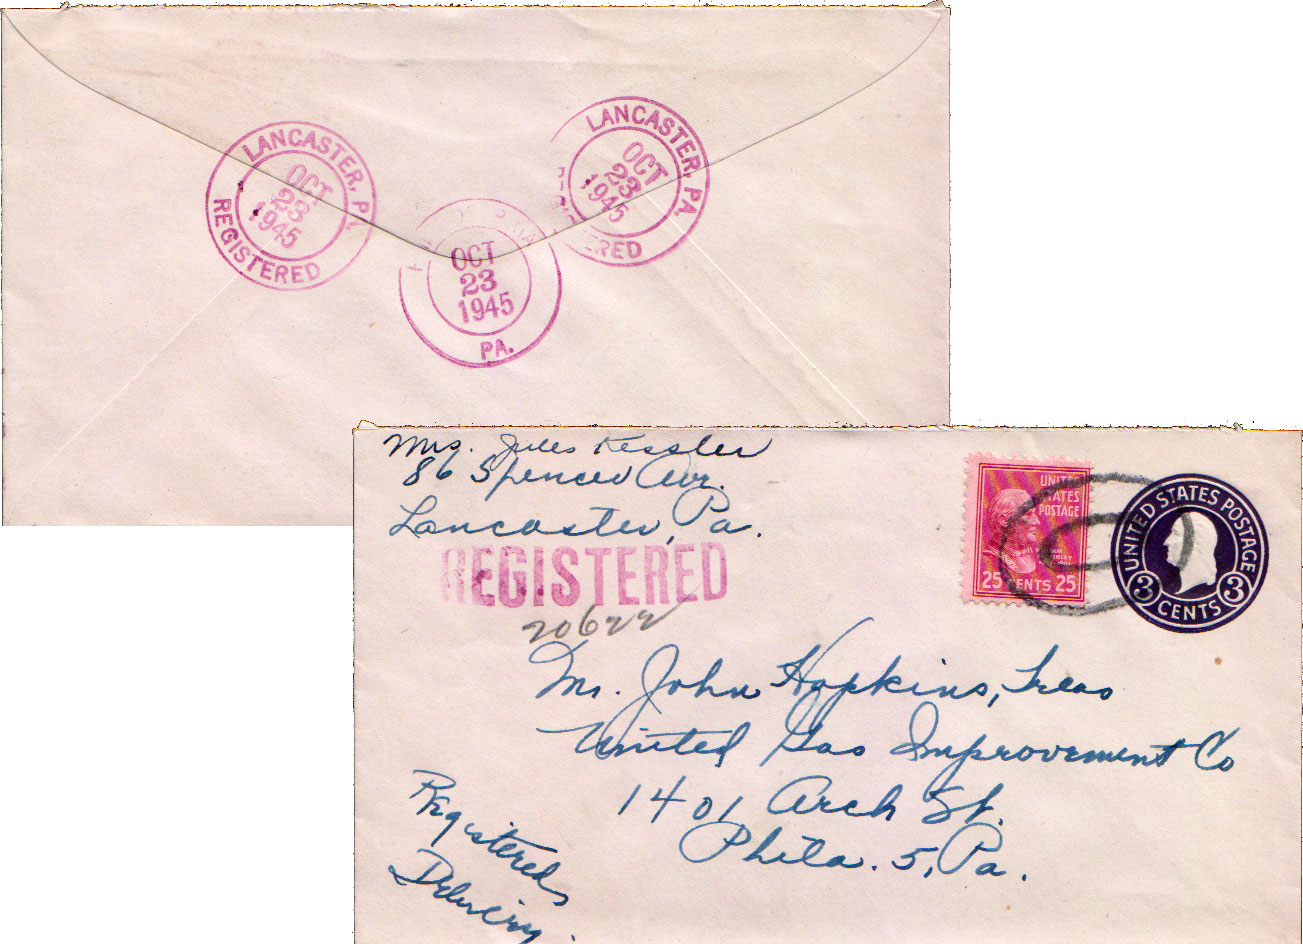 LANCASTER, PA.
OCT
23
1945
REGISTERED
LANCASTER, PA.
OCT
23
1945
OCT
23
1945
PA.
Mrs. Jules Kessler
86 Spencer Ave.
Lancaster, Pa.
REGISTERED
UNITED
STATES
POSTAGE
25 CENTS 25
UNITED STATES POSTAGE
3 CENTS 3
Mr. John Hopkins, Treas
United Gas Improvement Co
1401 Arch St.
Phila. 5, Pa.
Registered
Delivery.